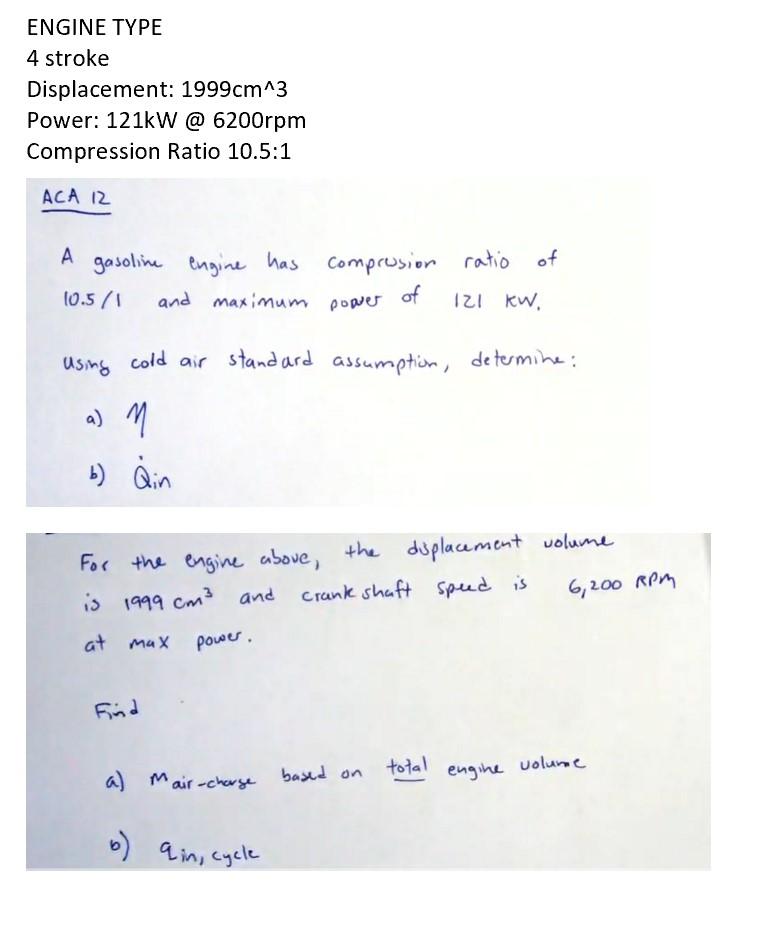 ENGINE TYPE
4 stroke
Displacement: 1999cm^3
Power: 121kW @ 6200rpm
Compression Ratio 10.5:1
ACA 12
A gasoline engine has compression ratio of
10.5/1 and maximum power of 121 kW.
Using cold air standard assumption, determine:
a) η
b) Q̇in
For the engine above, the displacement volume
is 1999 cm³ and crank shaft speed is 6,200 RPM
at max power.
Find
a) m air-charge based on total engine volume
b) q in, cycle